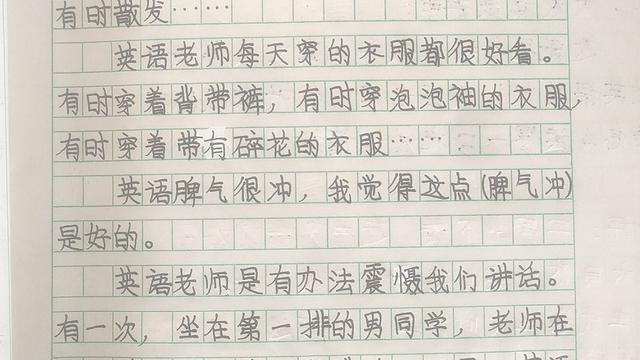 有时散发……
英语老师每天穿的衣服都很好看。
有时穿着背带裤，有时穿泡泡袖的衣服，
有时穿着带有碎花的衣服……
英语脾气很冲，我觉得这点(脾气冲)
是好的。
英语老师是有办法震慑我们讲话。
有一次，坐在第一排的男同学，老师在